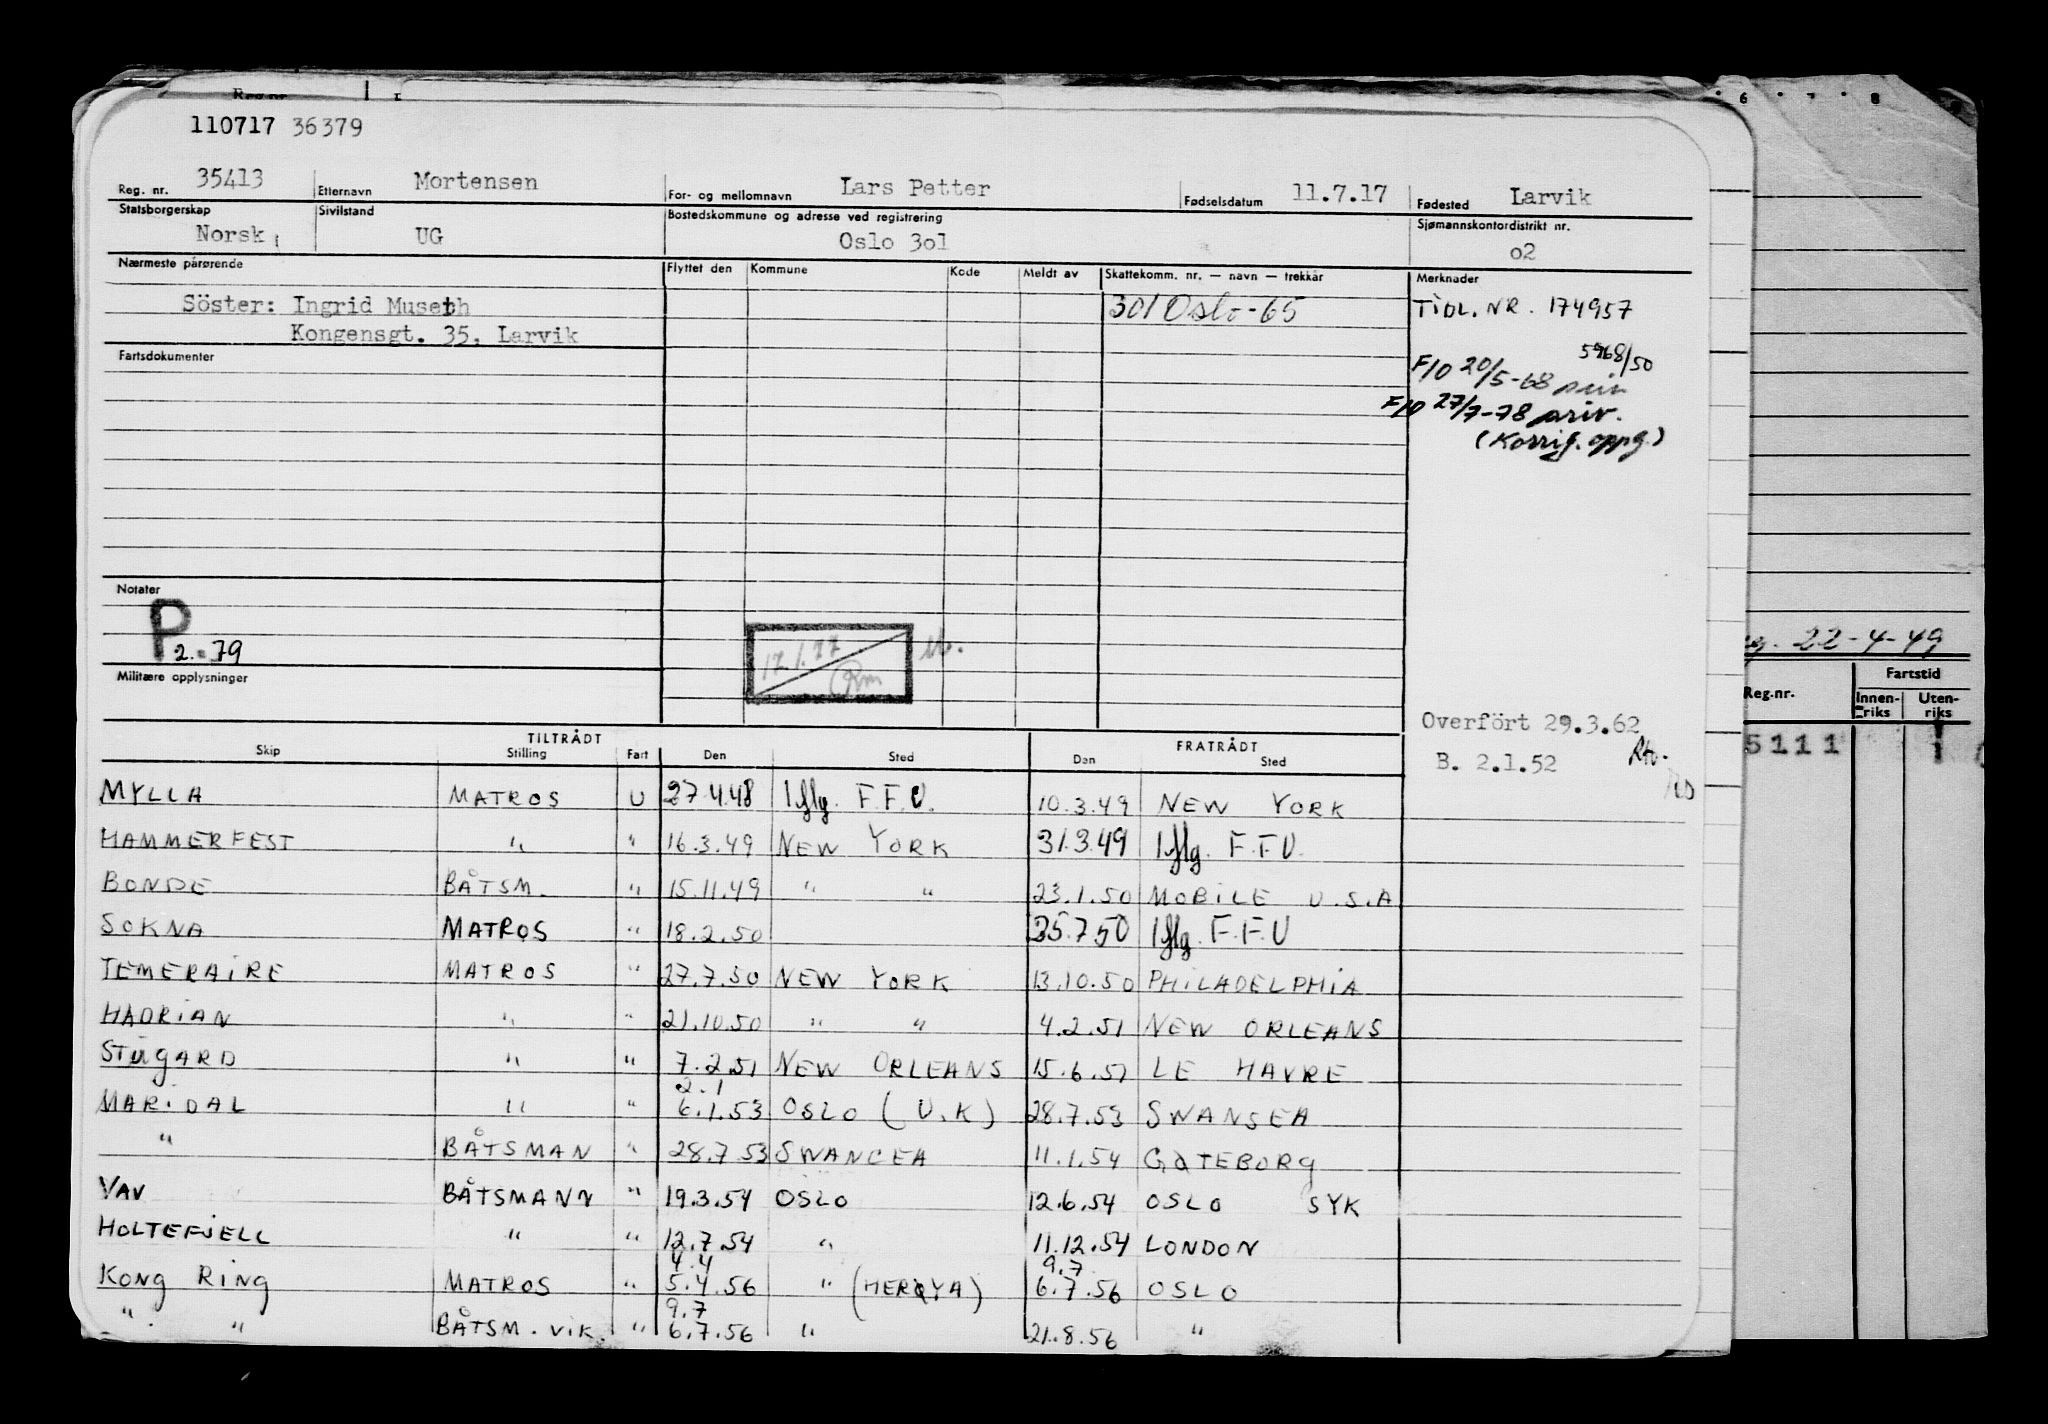 Reg.nr.
110717 36379
Reg. nr. 35413 Etternavn Mortensen For- og mellomnavn Lars Petter Fødselsdatum 11.7.17 Fødested Larvik
Statsborgerskap Sivilstand Bostedskommune og adresse ved registrering Sjømannskontordistrikt nr.
Norsk UG Oslo 3o1 o2
Nærmeste pårørende Flyttet den Kommune Kode Meldt av Skattekomm. nr. — navn — trekkår Merknader
Söster: Ingrid Museth 301 Oslo-65 TIDL. NR. 174957
Kongensgt. 35, Larvik
Fartsdokumenter
F/O 20/5-68
F/O 27/7-78 priv.
(Korrig. oppg.)
Notater
P
2.-79
17.1.77
Militære opplysninger
Overfört 29.3.62
B. 2.1.52
TILTRÅDT FRATRÅDT
Skip Stilling Fart Den Sted Den Sted
MYLLA MATROS U 27.4.48 Iflg. F.F.U. 10.3.49 NEW YORK
HAMMERFEST " " 16.3.49 NEW YORK 31.3.49 Iflg. F.F.U.
BONDE BÅTSM. " 15.11.49 " " 23.1.50 MOBILE U.S.A
SOKNA MATROS " 18.2.50 25.7.50 Iflg. F.F.U
TEMERAIRE MATROS " 27.7.50 NEW YORK 13.10.50 PHILADELPHIA
HADRIAN " " 21.10.50 " " 4.2.51 NEW ORLEANS
STUGARD " " 7.2.51 NEW ORLEANS 15.6.51 LE HAVRE
2.1
MARIDAL " " 6.1.53 OSLO (U.K) 28.7.53 SWANSEA
" BÅTSMAN " 28.7.53 SWANCEA 11.1.54 GØTEBORG
VAV BÅTSMANN " 19.3.54 OSLO 12.6.54 OSLO SYK
HOLTEFJELL " " 12.7.54 " 11.12.54 LONDON
4.4 9.7
KONG RING MATROS " 5.4.56 " (HERØYA) 6.7.56 OSLO
9.7
" " BÅTSM. VIK. " 6.7.56 " 21.8.56 "
6 7 8
22-4-49
Reg.nr. Fartstid
Innen-riks Uten-riks
5111 1